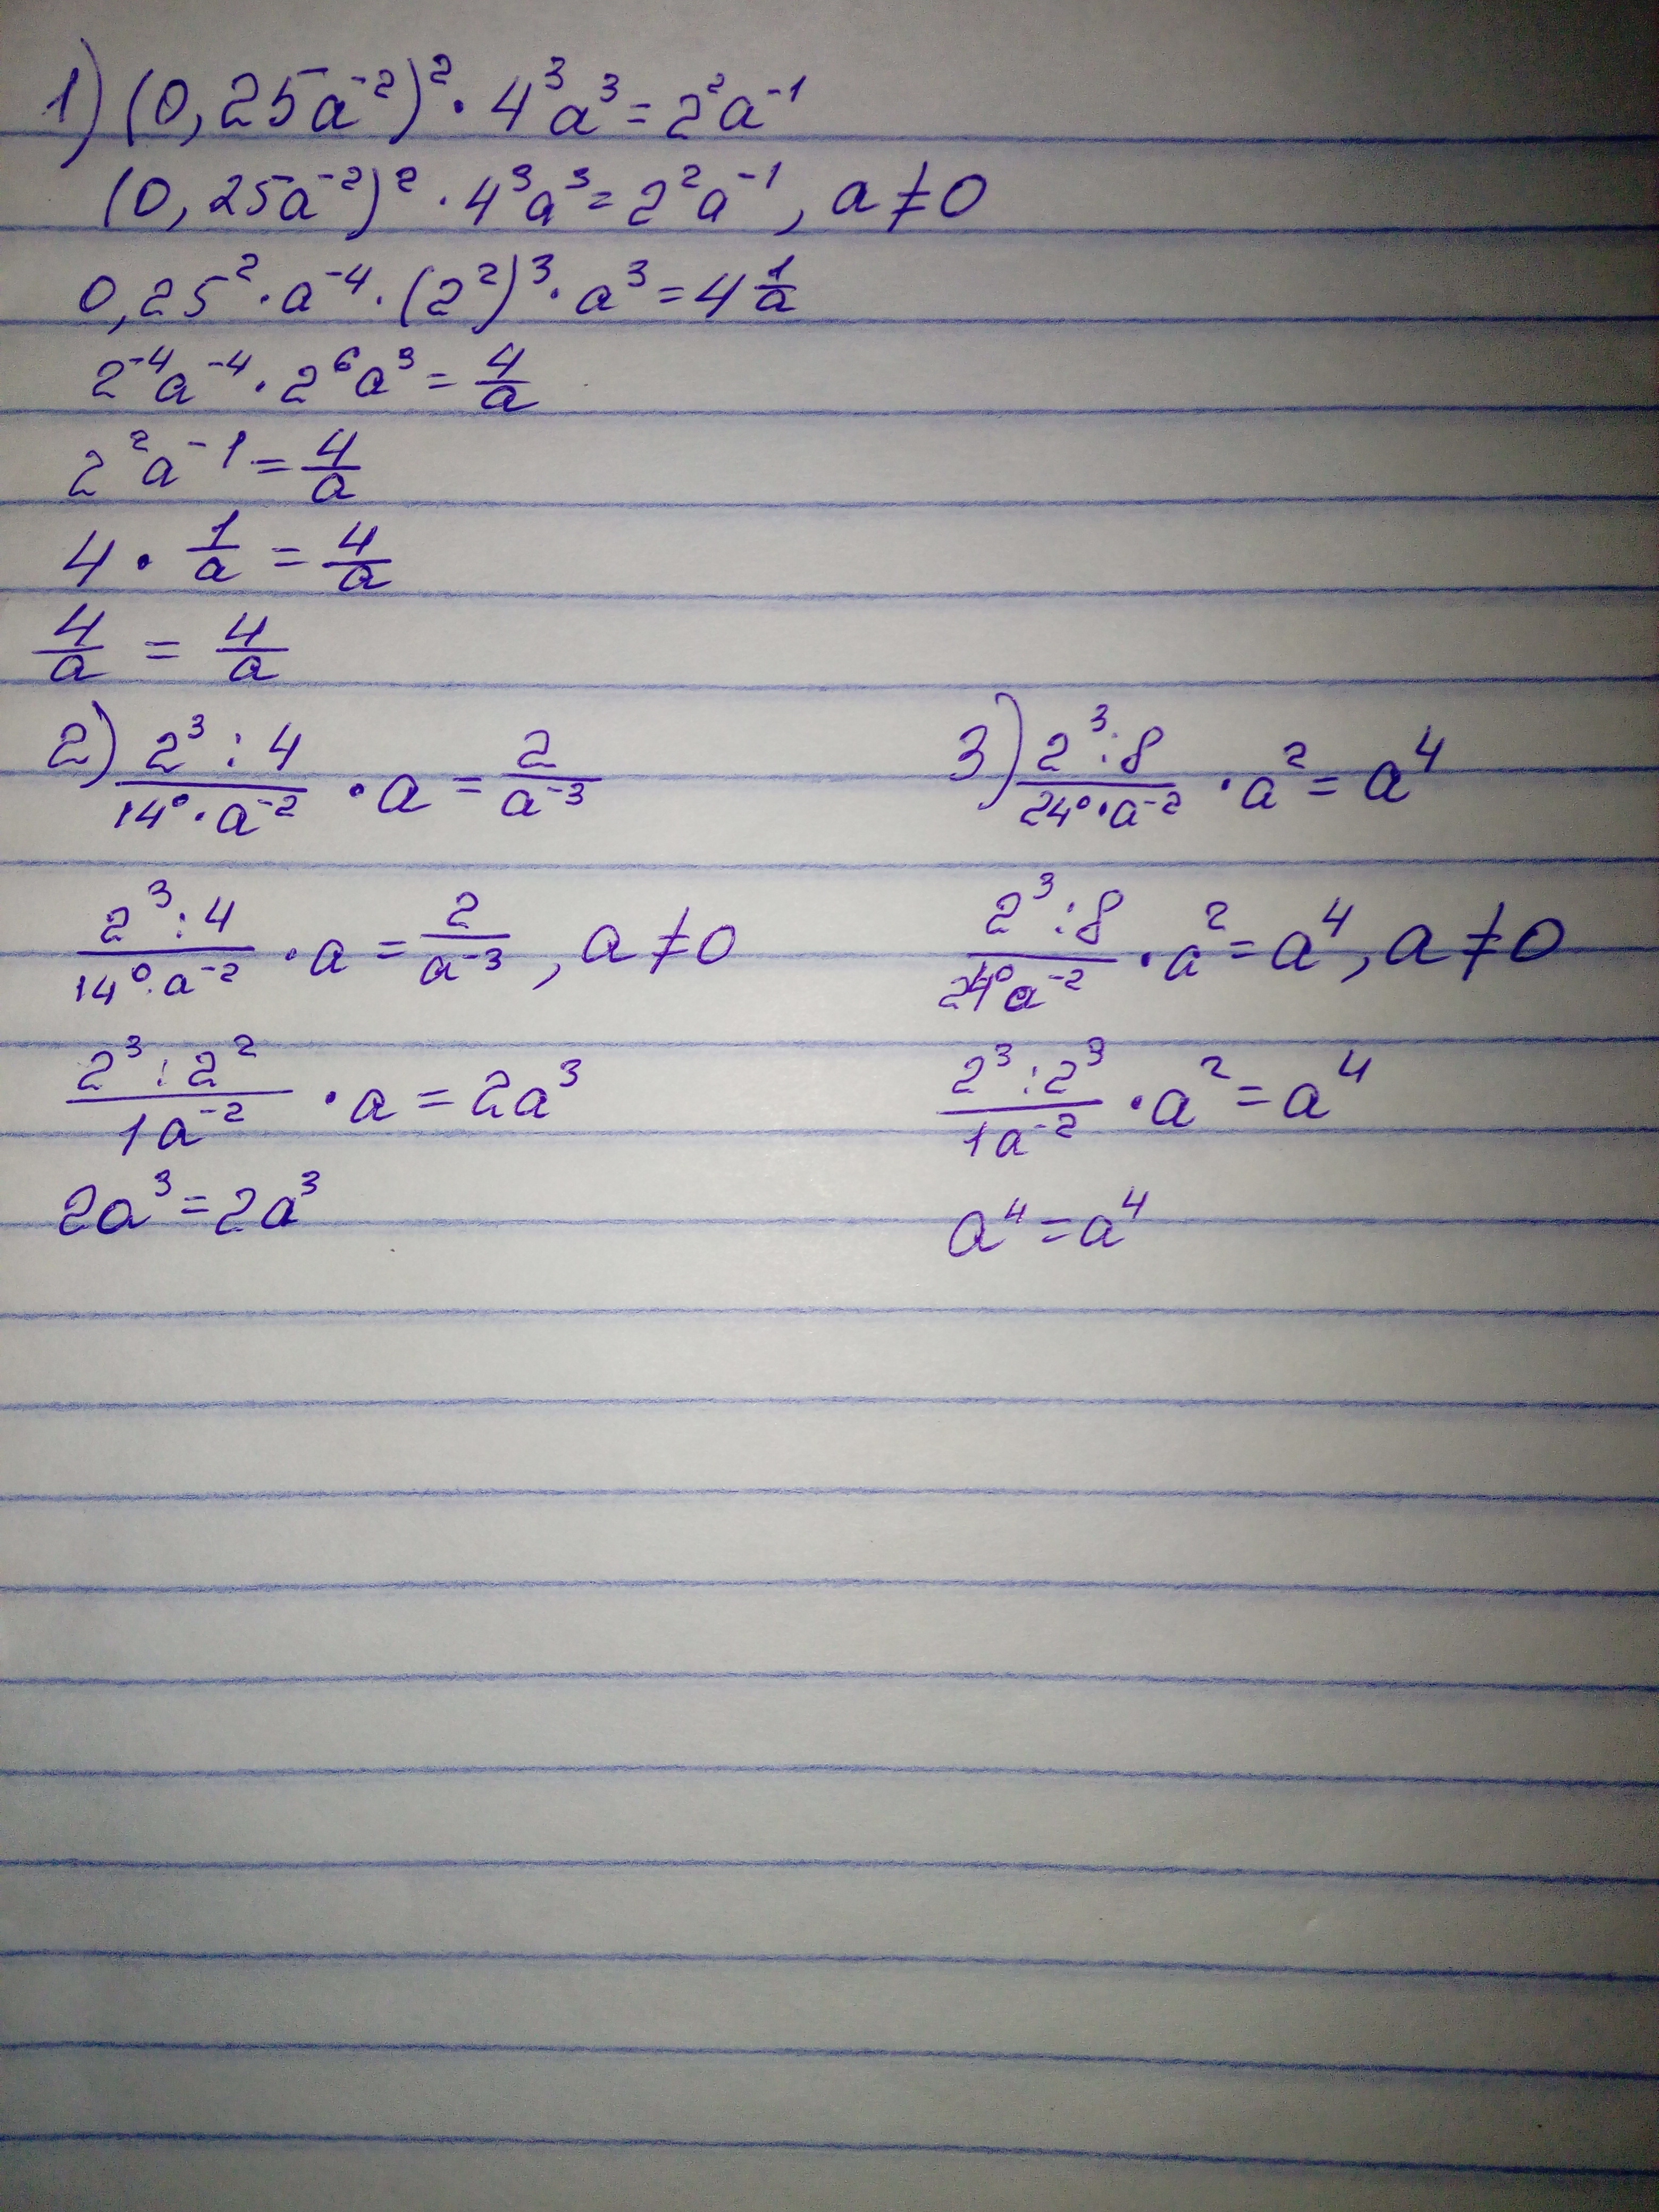 1) (0,25a⁻²)² · 4³a³ = 2²a⁻¹
(0,25a⁻²)² · 4³a³ = 2²a⁻¹, a ≠ 0
0,25² · a⁻⁴ · (2²)³ · a³ = 4 1/a
2⁻⁴a⁻⁴ · 2⁶a³ = 4/a
2²a⁻¹ = 4/a
4 · 1/a = 4/a
4/a = 4/a
2) (2³ : 4)/(14⁰ · a⁻²) · a = 2/a⁻³
(2³ : 4)/(14⁰ · a⁻²) · a = 2/a⁻³, a ≠ 0
(2³ : 2²)/(1a⁻²) · a = 2a³
2a³ = 2a³
3) (2³ : 8)/(24⁰ · a⁻²) · a² = a⁴
(2³ : 8)/(24⁰a⁻²) · a² = a⁴, a ≠ 0
(2³ : 2³)/(1a⁻²) · a² = a⁴
a⁴ = a⁴